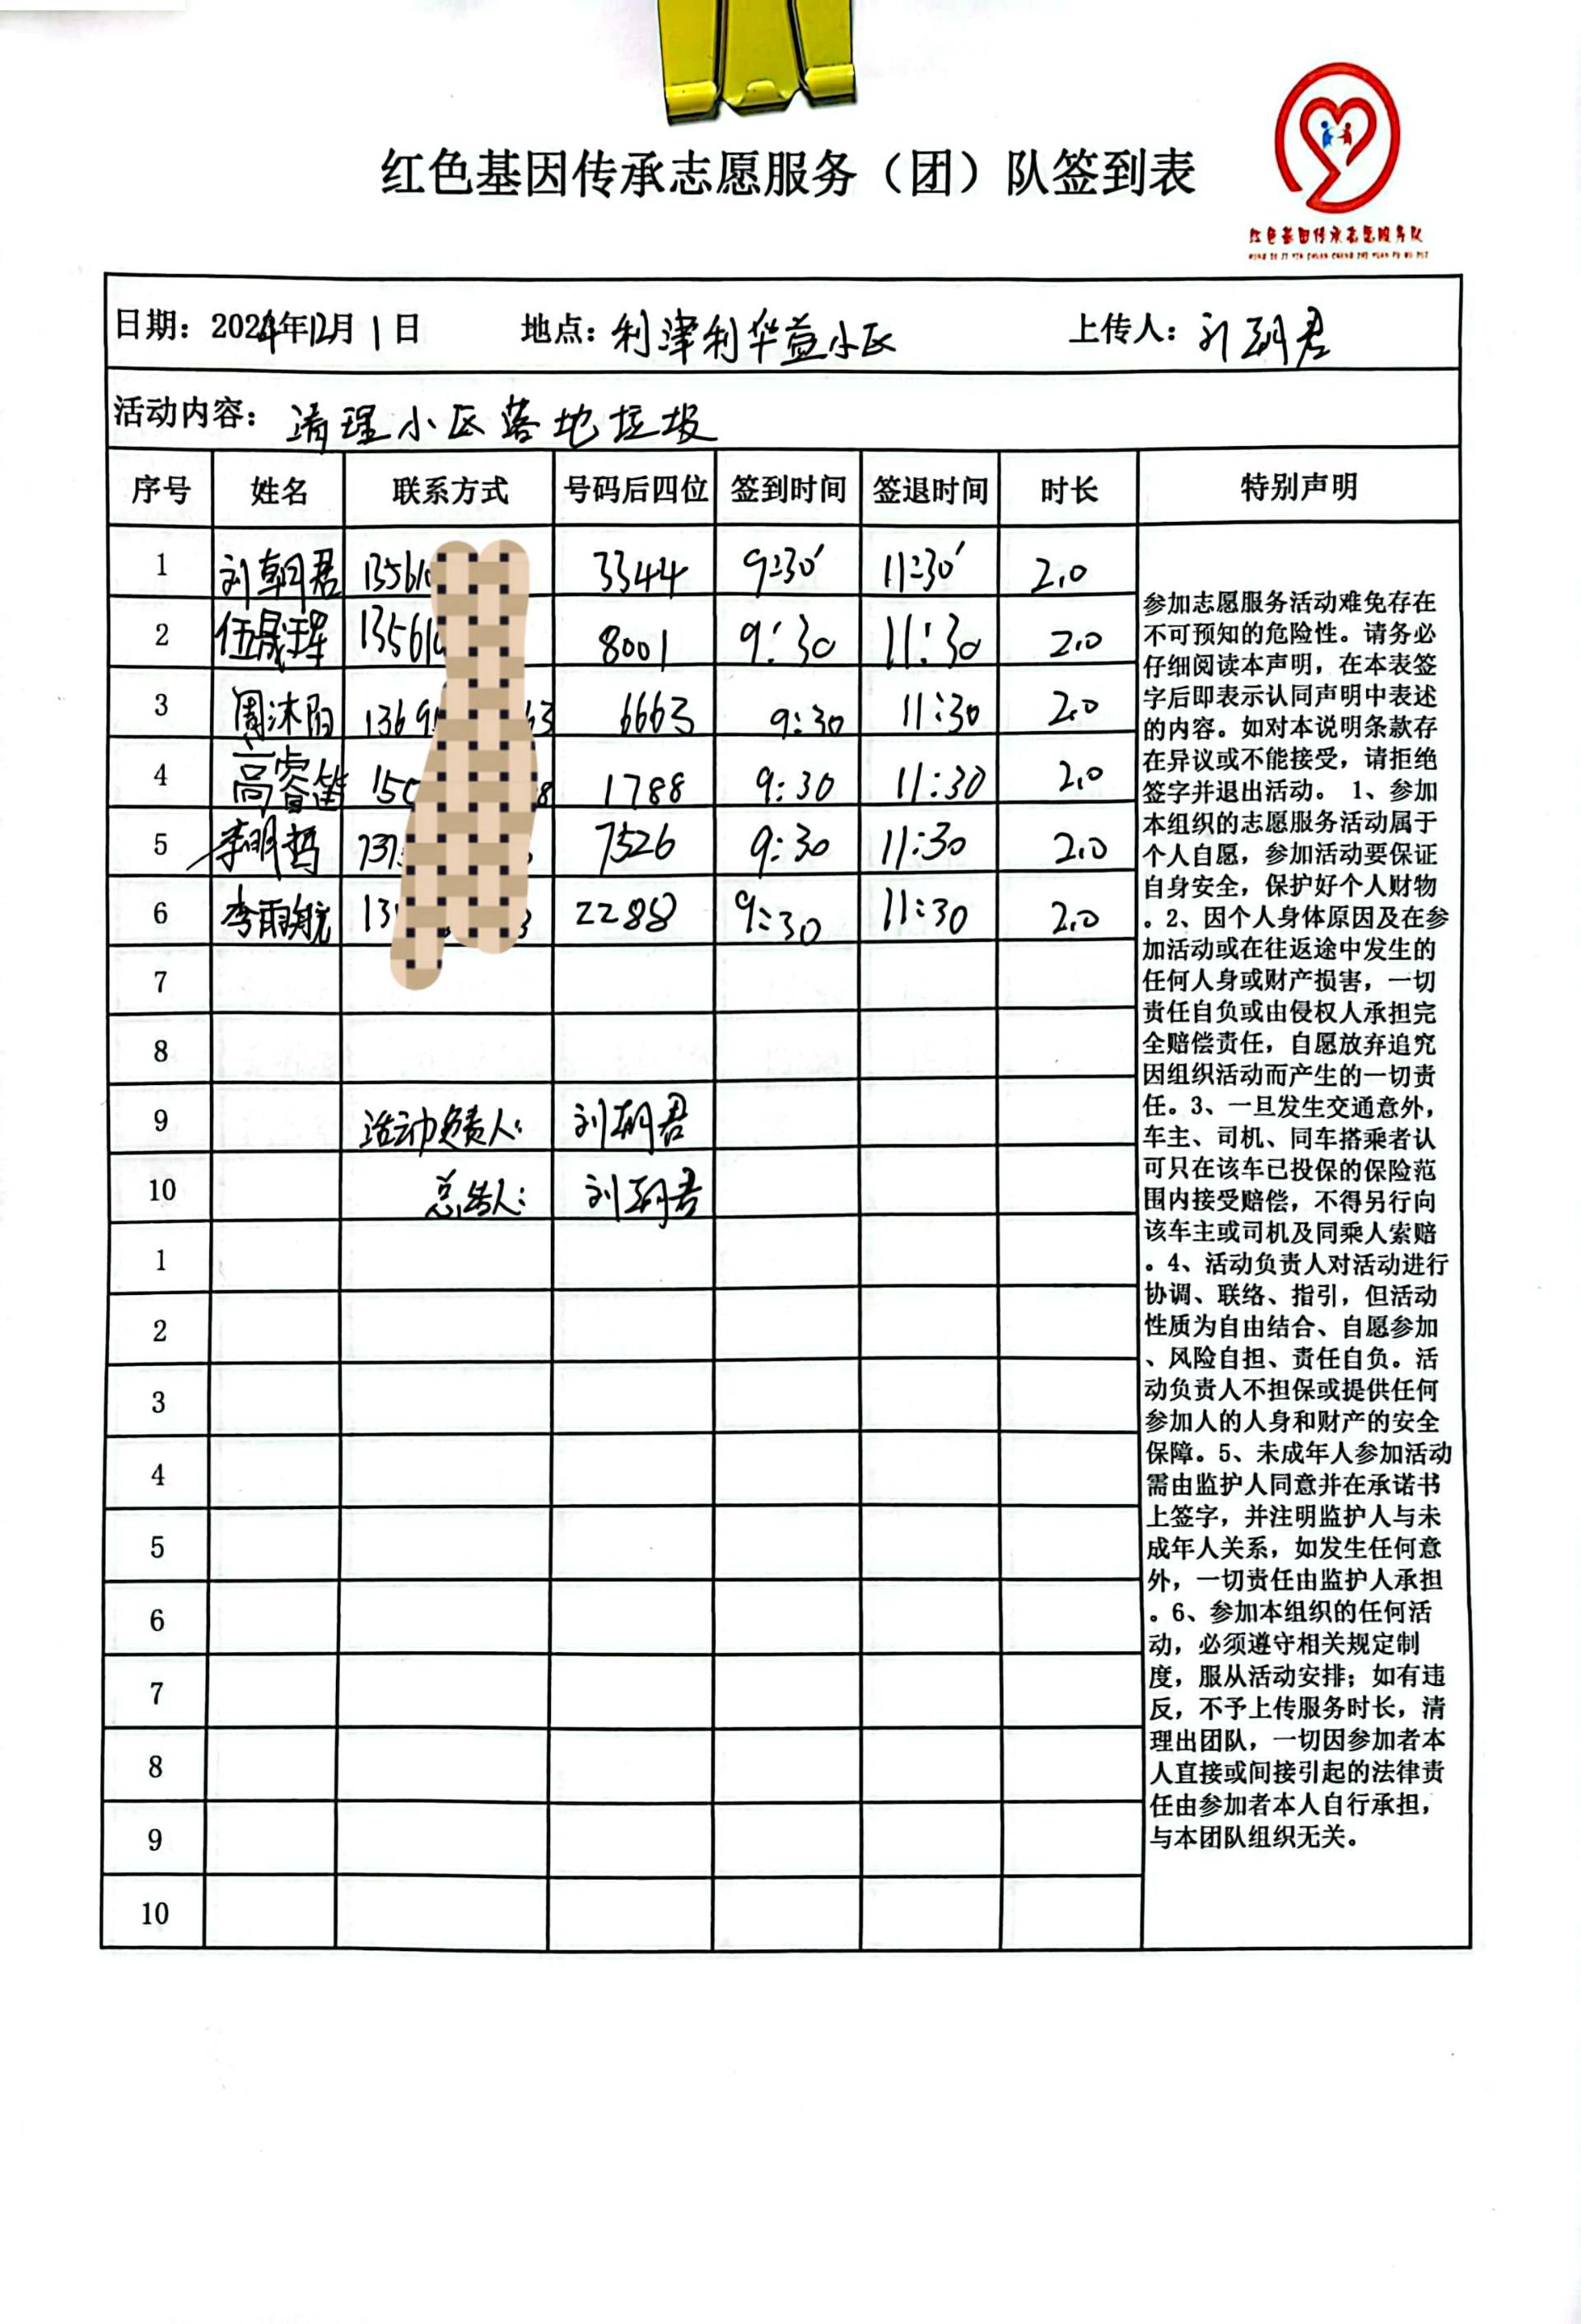 红色基因传承志愿服务（团）队签到表
红色基因传承志愿服务队
日期：2024年12月1日 地点：利津利华益小区 上传人：刘朝君
活动内容：清理小区落地垃圾
序号 姓名 联系方式 号码后四位 签到时间 签退时间 时长 特别声明
1 刘朝君 13561 3344 9:30′ 11:30′ 2.0
2 伍晟珲 13561 8001 9:30 11:30 2.0
3 周沐阳 1369 63 6663 9:30 11:30 2.0
4 高睿笛 15 8 1788 9:30 11:30 2.0
5 李明哲 737 7526 9:30 11:30 2.0
6 李雨航 13 3 2288 9:30 11:30 2.0
7
8
9 活动负责人： 刘朝君
10 总结人： 刘朝君
1
2
3
4
5
6
7
8
9
10
参加志愿服务活动难免存在
不可预知的危险性。请务必
仔细阅读本声明，在本表签
字后即表示认同声明中表述
的内容。如对本说明条款存
在异议或不能接受，请拒绝
签字并退出活动。 1、参加
本组织的志愿服务活动属于
个人自愿，参加活动要保证
自身安全，保护好个人财物
。2、因个人身体原因及在参
加活动或在往返途中发生的
任何人身或财产损害，一切
责任自负或由侵权人承担完
全赔偿责任，自愿放弃追究
因组织活动而产生的一切责
任。3、一旦发生交通意外，
车主、司机、同车搭乘者认
可只在该车已投保的保险范
围内接受赔偿，不得另行向
该车主或司机及同乘人索赔
。4、活动负责人对活动进行
协调、联络、指引，但活动
性质为自由结合、自愿参加
、风险自担、责任自负。活
动负责人不担保或提供任何
参加人的人身和财产的安全
保障。5、未成年人参加活动
需由监护人同意并在承诺书
上签字，并注明监护人与未
成年人关系，如发生任何意
外，一切责任由监护人承担
。6、参加本组织的任何活
动，必须遵守相关规定制
度，服从活动安排；如有违
反，不予上传服务时长，清
理出团队，一切因参加者本
人直接或间接引起的法律责
任由参加者本人自行承担，
与本团队组织无关。